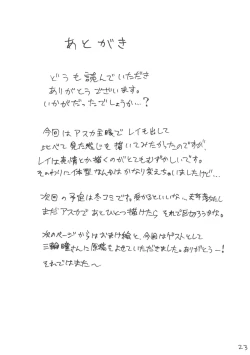 あとがき
どうも読んでいただき
ありがとうございます。
いかがだったでしょうか…?
今回はアスカ主眼でレイも出して
比べて見た感じを描いてみたかったのですが、
レイは表情とか描くのがとてもむずかしいです。
そのわりに体型なんかはかなり変えちゃいましたけど…
次回の予定は冬コミです。受かるといいな〜去年落ちたし
まだアスカであとひとつ描けたら それで区切ろうかな。
次のページからはおまけ絵と、今回はゲストとして
三輪瞳さんに原稿をよせていただきました。ありがとう〜!
それではまた〜
23